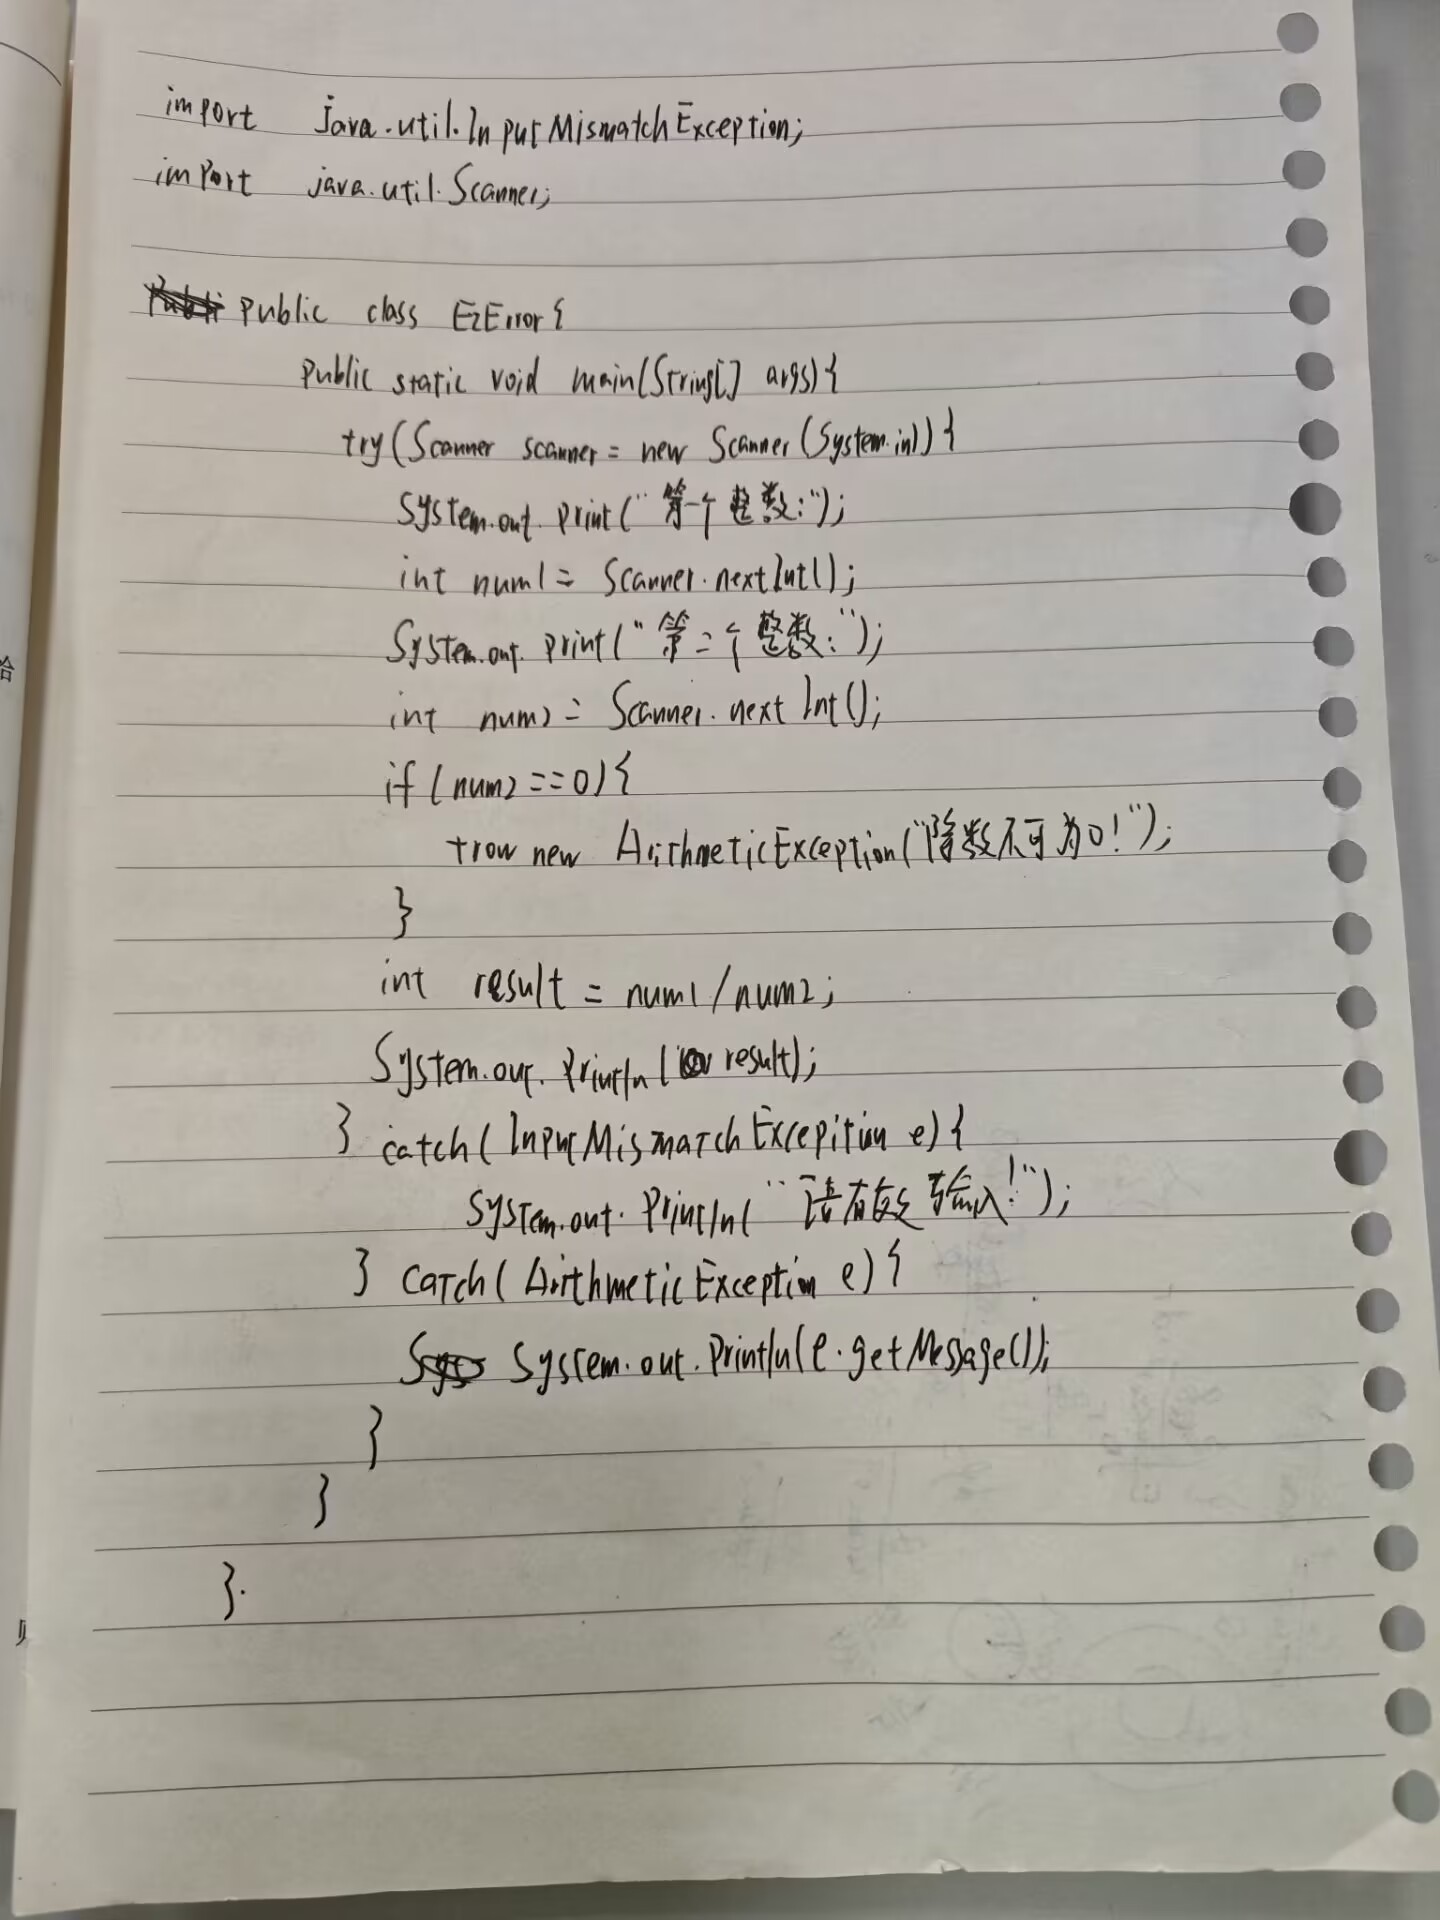 import java.util.InputMismatchException;
import java.util.Scanner;
public class EzError{
public static void main(String[] args){
try(Scanner scanner = new Scanner(System.in)){
System.out.print("第一个整数:");
int num1 = Scanner.nextInt();
System.out.print("第二个整数:");
int num2 = Scanner.nextInt();
if(num2==0){
trow new ArithmeticException("除数不可为0!");
}
int result = num1/num2;
System.out.println(result);
} catch(InputMismatchExcepition e){
System.out.println("请有效输入!");
} catch(ArithmeticException e){
System.out.println(e.getMessage());
}
}
}.
哈